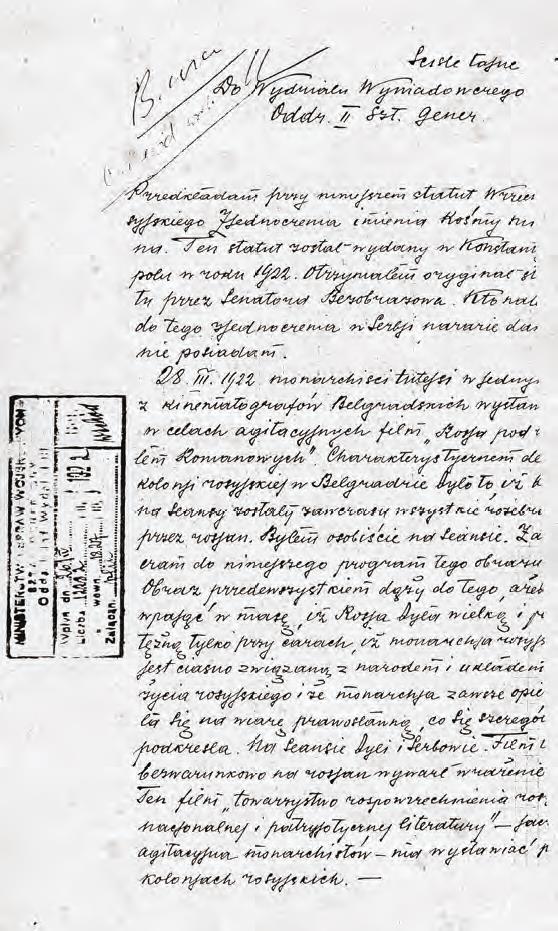 Ściśle tajne
Do Wydziału Wywiadowczego
Oddz. II Szt. Gener.
Przedkładam przy niniejszem statut Wszech
syjskiego Zjednoczenia imienia Kośmy
na. Ten statut został wydany w Konstan
polu w roku 1922. Otrzymałem oryginał st
tu przez Senatora Bezobrazowa. Kto nal
do tego zjednoczenia w Serbji narazie dan
nie posiadam.
28. III. 1922. monarchiści tutejsi w jedny
z kinematografów Belgradskich wystaw
w celach agitacyjnych film „Rosja pod
łem Romanowych". Charakterystycznem dl
kolonji rosyjskiej w Belgradzie było to iż b
na seansy zostały zawczasu wszystkie rozebr
przez rosjan. Byłem osobiście na seansie. Za
czam do niniejszego program tego obrazu
Obraz przedewszystkiem dąży do tego, ażeb
wpająć w masę, iż Rosja była wielką i p
tężną tylko przy carach, iż monarchja rosyjs
jest ciasno związaną z narodem i układem
życia rosyjskiego i że monarchja zawsze opie
ła się na wiarę prawosławną, co się szczegól
podkreśla. Na seansie byli i Serbowie. Film
bezwarunkowo na rosjan wywarł wrażenie
Ten film „towarzystwo rozpowszechnienia ros.
nacjonalnej i patryotycznej literatury" —
agitacyjna monarchistów — ma wystawiać p
kolonjach rosyjskich. —
MINISTERSTWO SPRAW WOJSKOWYCH
Oddział II Wydział
Wpłyn. dn.
Liczba 192
wewn.
Załączn.